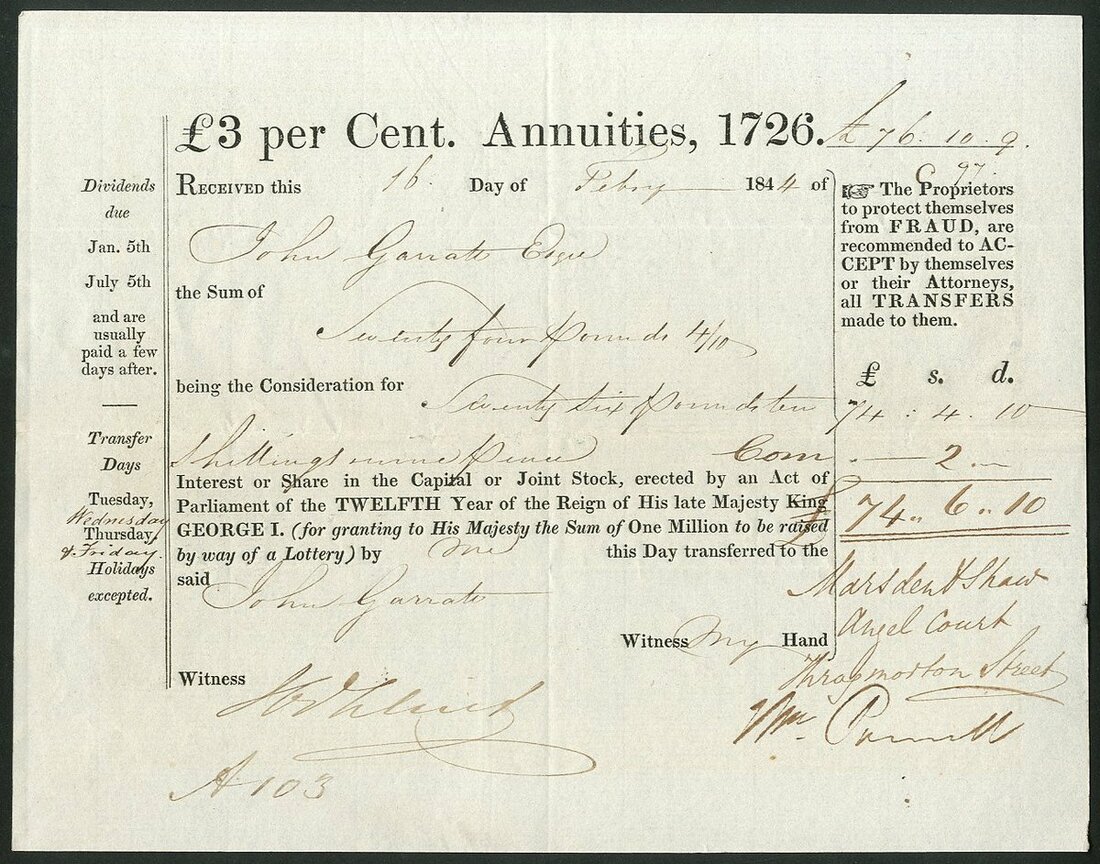 £3 per Cent. Annuities, 1726.
£ 76. 10. 9.
C 97.
Dividends
due
Jan. 5th
July 5th
and are
usually
paid a few
days after.
Transfer
Days
Tuesday,
Wednesday
Thursday,
& Friday.
Holidays
excepted.
RECEIVED this 16. Day of Febry 1844 of
John Garratt Esqre
the Sum of
Seventy four Pounds 4/10
being the Consideration for
Seventy Six Pounds ten
Shillings nine Pence
Interest or Share in the Capital or Joint Stock, erected by an Act of
Parliament of the TWELFTH Year of the Reign of His late Majesty King
GEORGE I. (for granting to His Majesty the Sum of One Million to be raised
by way of a Lottery) by me this Day transferred to the
said John Garratt
Witness My Hand
Witness
A 103
☞ The Proprietors
to protect themselves
from FRAUD, are
recommended to AC-
CEPT by themselves
or their Attorneys,
all TRANSFERS
made to them.
£ s. d.
74 . 4 . 10
Com . — 2 . —
£ 74 .. 6 .. 10
Marsden & Shaw
Angel Court
Throgmorton Street
Wm. Purnell